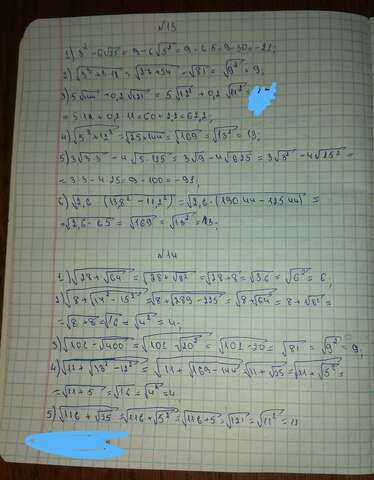 №13
1) 3² - 6√25 = 9 - 6√5² = 9 - 6·5 = 9 - 30 = -21;
2) √3³ + 3·18 = √27 + 54 = √81 = √9² = 9;
3) 5√144 + 0,2√121 = 5√12² + 0,2√11² =
= 5·12 + 0,2·11 = 60 + 2,2 = 62,2;
4) √5² + 12² = √25 + 144 = √169 = √13² = 13;
5) 3√3·3 - 4√5·125 = 3√9 - 4√625 = 3√3² - 4√25² =
= 3·3 - 4·25 = 9 - 100 = -91;
6) √2,6·(13,8² - 11,2²) = √2,6·(190,44 - 125,44) =
= √2,6·65 = √169 = √13² = 13.
№14
1) √28 + √64 = √28 + √8² = √28 + 8 = √36 = √6² = 6,
2) √8 + √17² - 15² = √8 + √289 - 225 = √8 + √64 = 8 + √8² =
= √8 + 8 = √16 = √4² = 4;
3) √101 - √400 = √101 - √20² = √101 - 20 = √81 = √9² = 9,
4) √11 + √13² - 12² = √11 + √169 - 144 = √11 + √25 = √11 + √5² =
= √11 + 5 = √16 = √4² = 4
5) √116 + √25 = √116 + √5² = √116 + 5 = √121 = √11² = 11